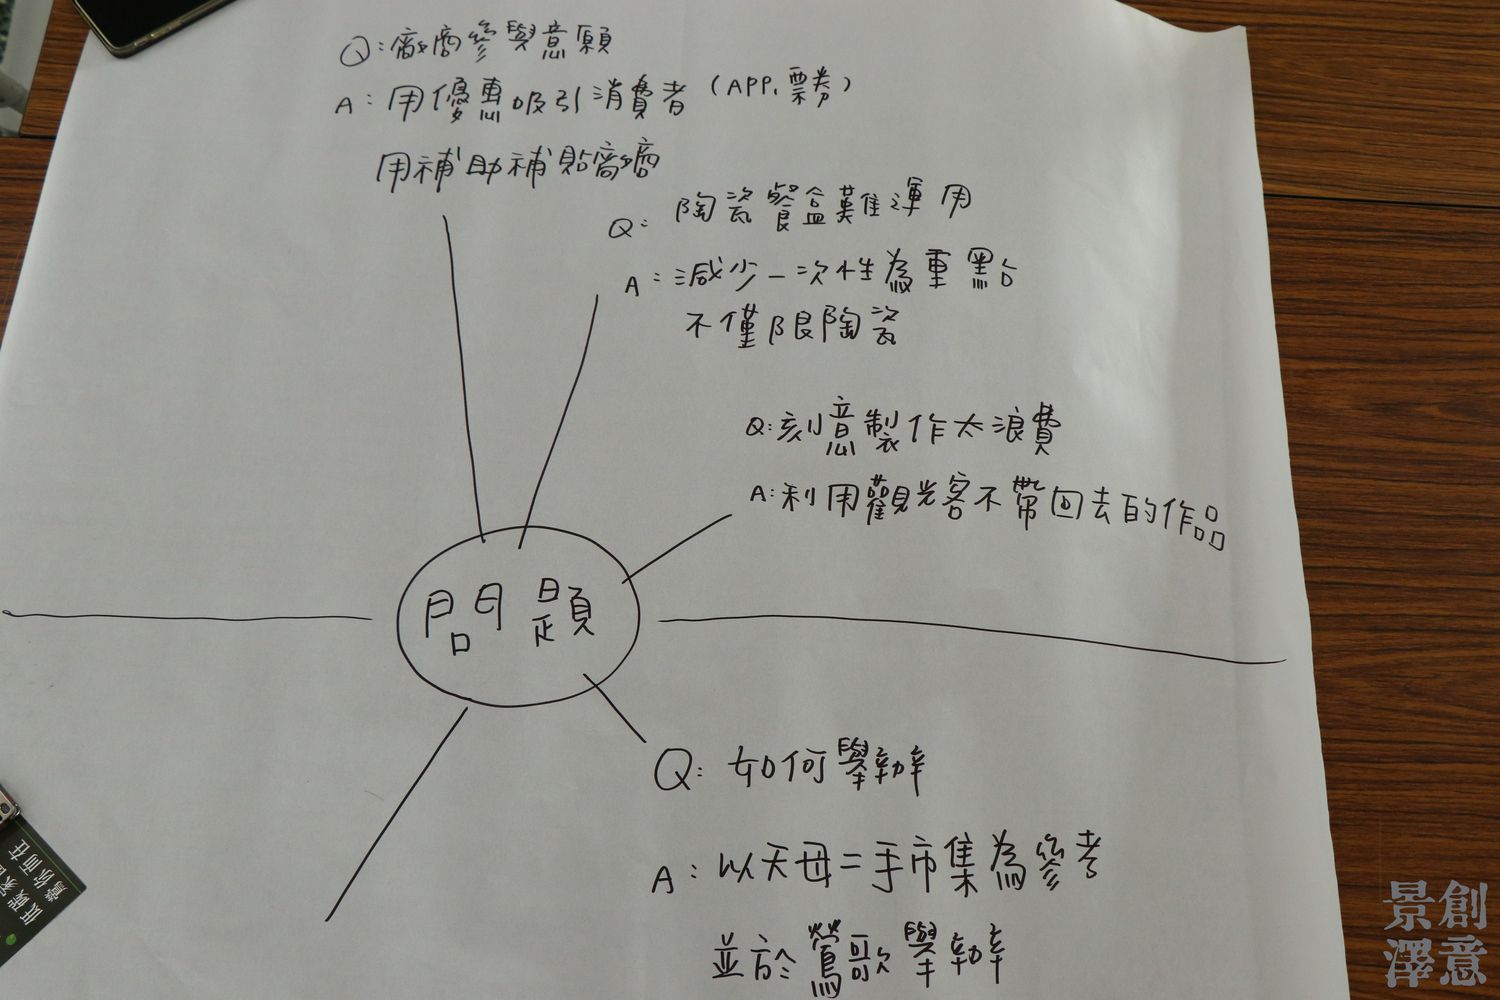 Q:廠商參與意願
A:用優惠吸引消費者(APP、票券)
用補助補貼廠商
Q:陶瓷餐盒難運用
A:減少一次性為重點
不僅限陶瓷
Q:刻意製作太浪費
A:利用觀光客不帶回去的作品
問題
Q:如何舉辦
A:以天母二手市集為參考
並於鶯歌舉辦
低碳
意你而在
景澤創意